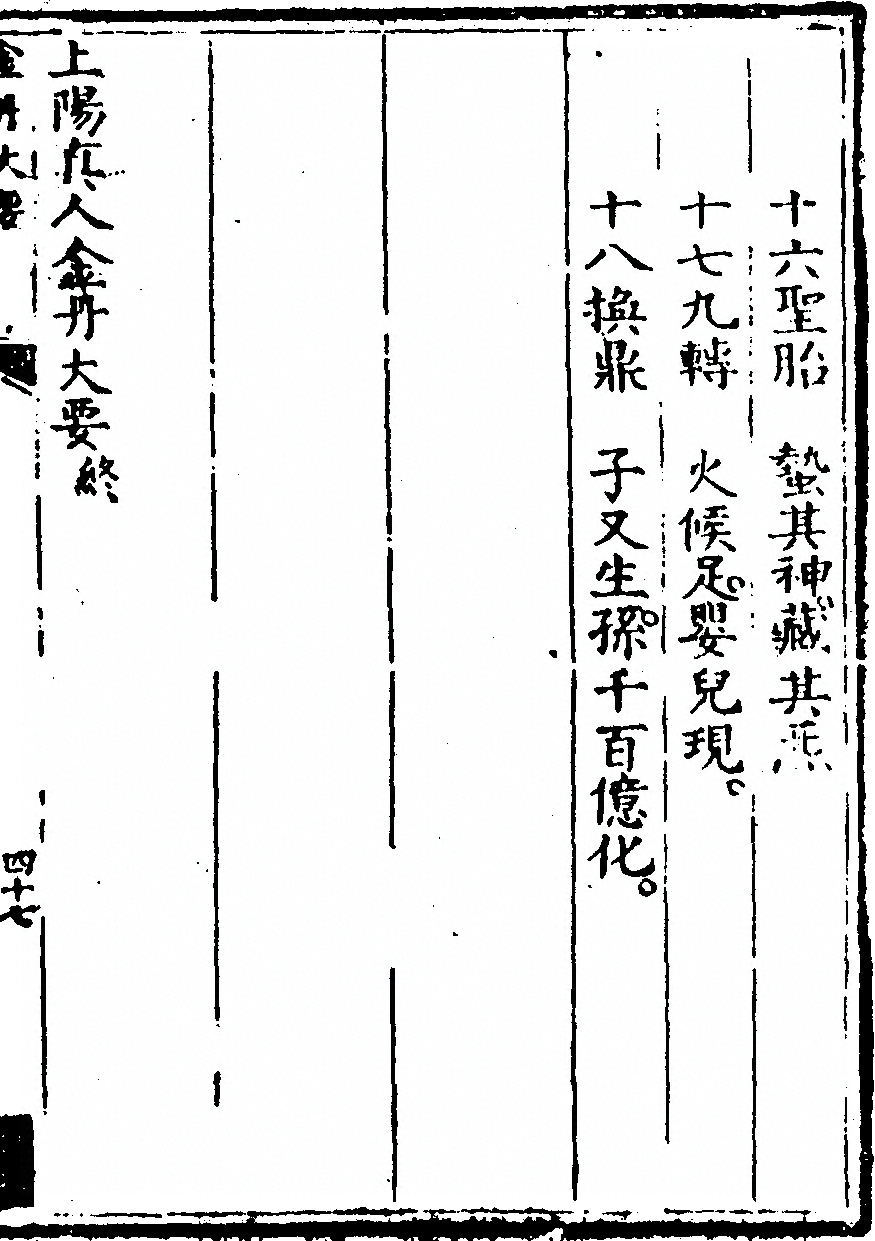 十六聖胎　蟄其神。藏其炁
十七九轉　火候足。嬰兒現。
十八換鼎　子又生孫。千百億化。
上陽真人金丹大要終
金丹大要
四十七